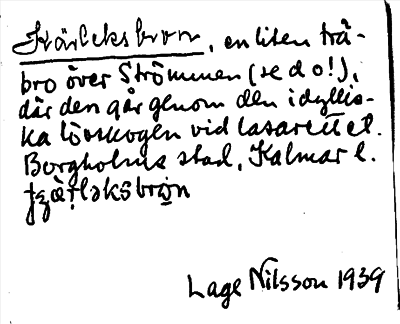 Kärleksbron, en liten trä-
bro över Strömmen (se d o!),
där den går genom den idyllis-
ka lövskogen vid lasarettet.
Borgholms stad, Kalmar l.
Lage Nilsson 1939